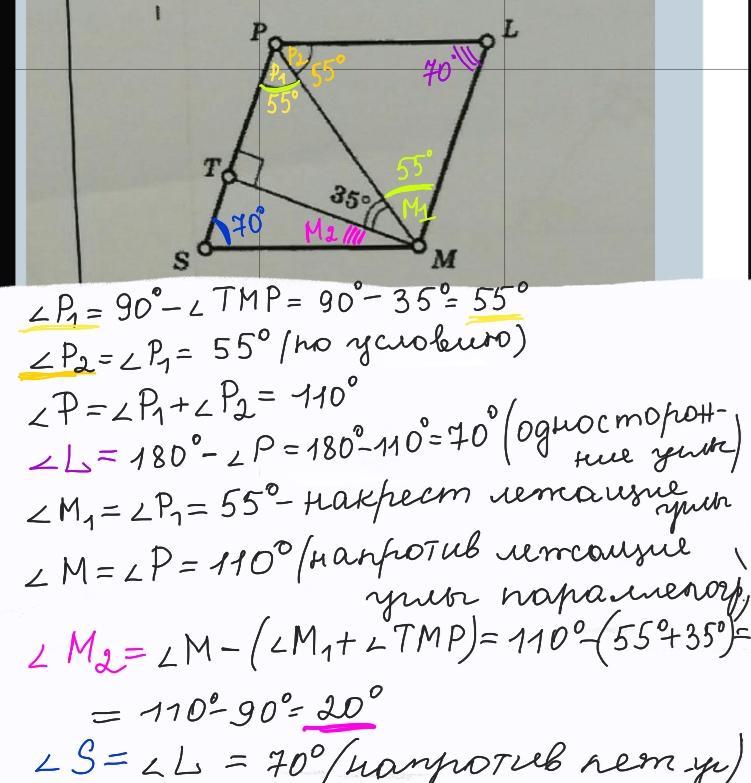 P
L
P₂
70°
P₁
55°
55°
T
55°
35°
M₁
70°
M₂
S
M
∠P₁ = 90° - ∠TMP = 90° - 35° = 55°
∠P₂ = ∠P₁ = 55° (по условию)
∠P = ∠P₁ + ∠P₂ = 110°
∠L = 180° - ∠P = 180° - 110° = 70° (односторон-
ние углы)
∠M₁ = ∠P₁ = 55° - накрест лежащие
углы
∠M = ∠P = 110° (напротив лежащие
углы параллелогр.)
∠M₂ = ∠M - (∠M₁ + ∠TMP) = 110° - (55° + 35°) =
= 110° - 90° = 20°
∠S = ∠L = 70° (напротив леж. уг.)